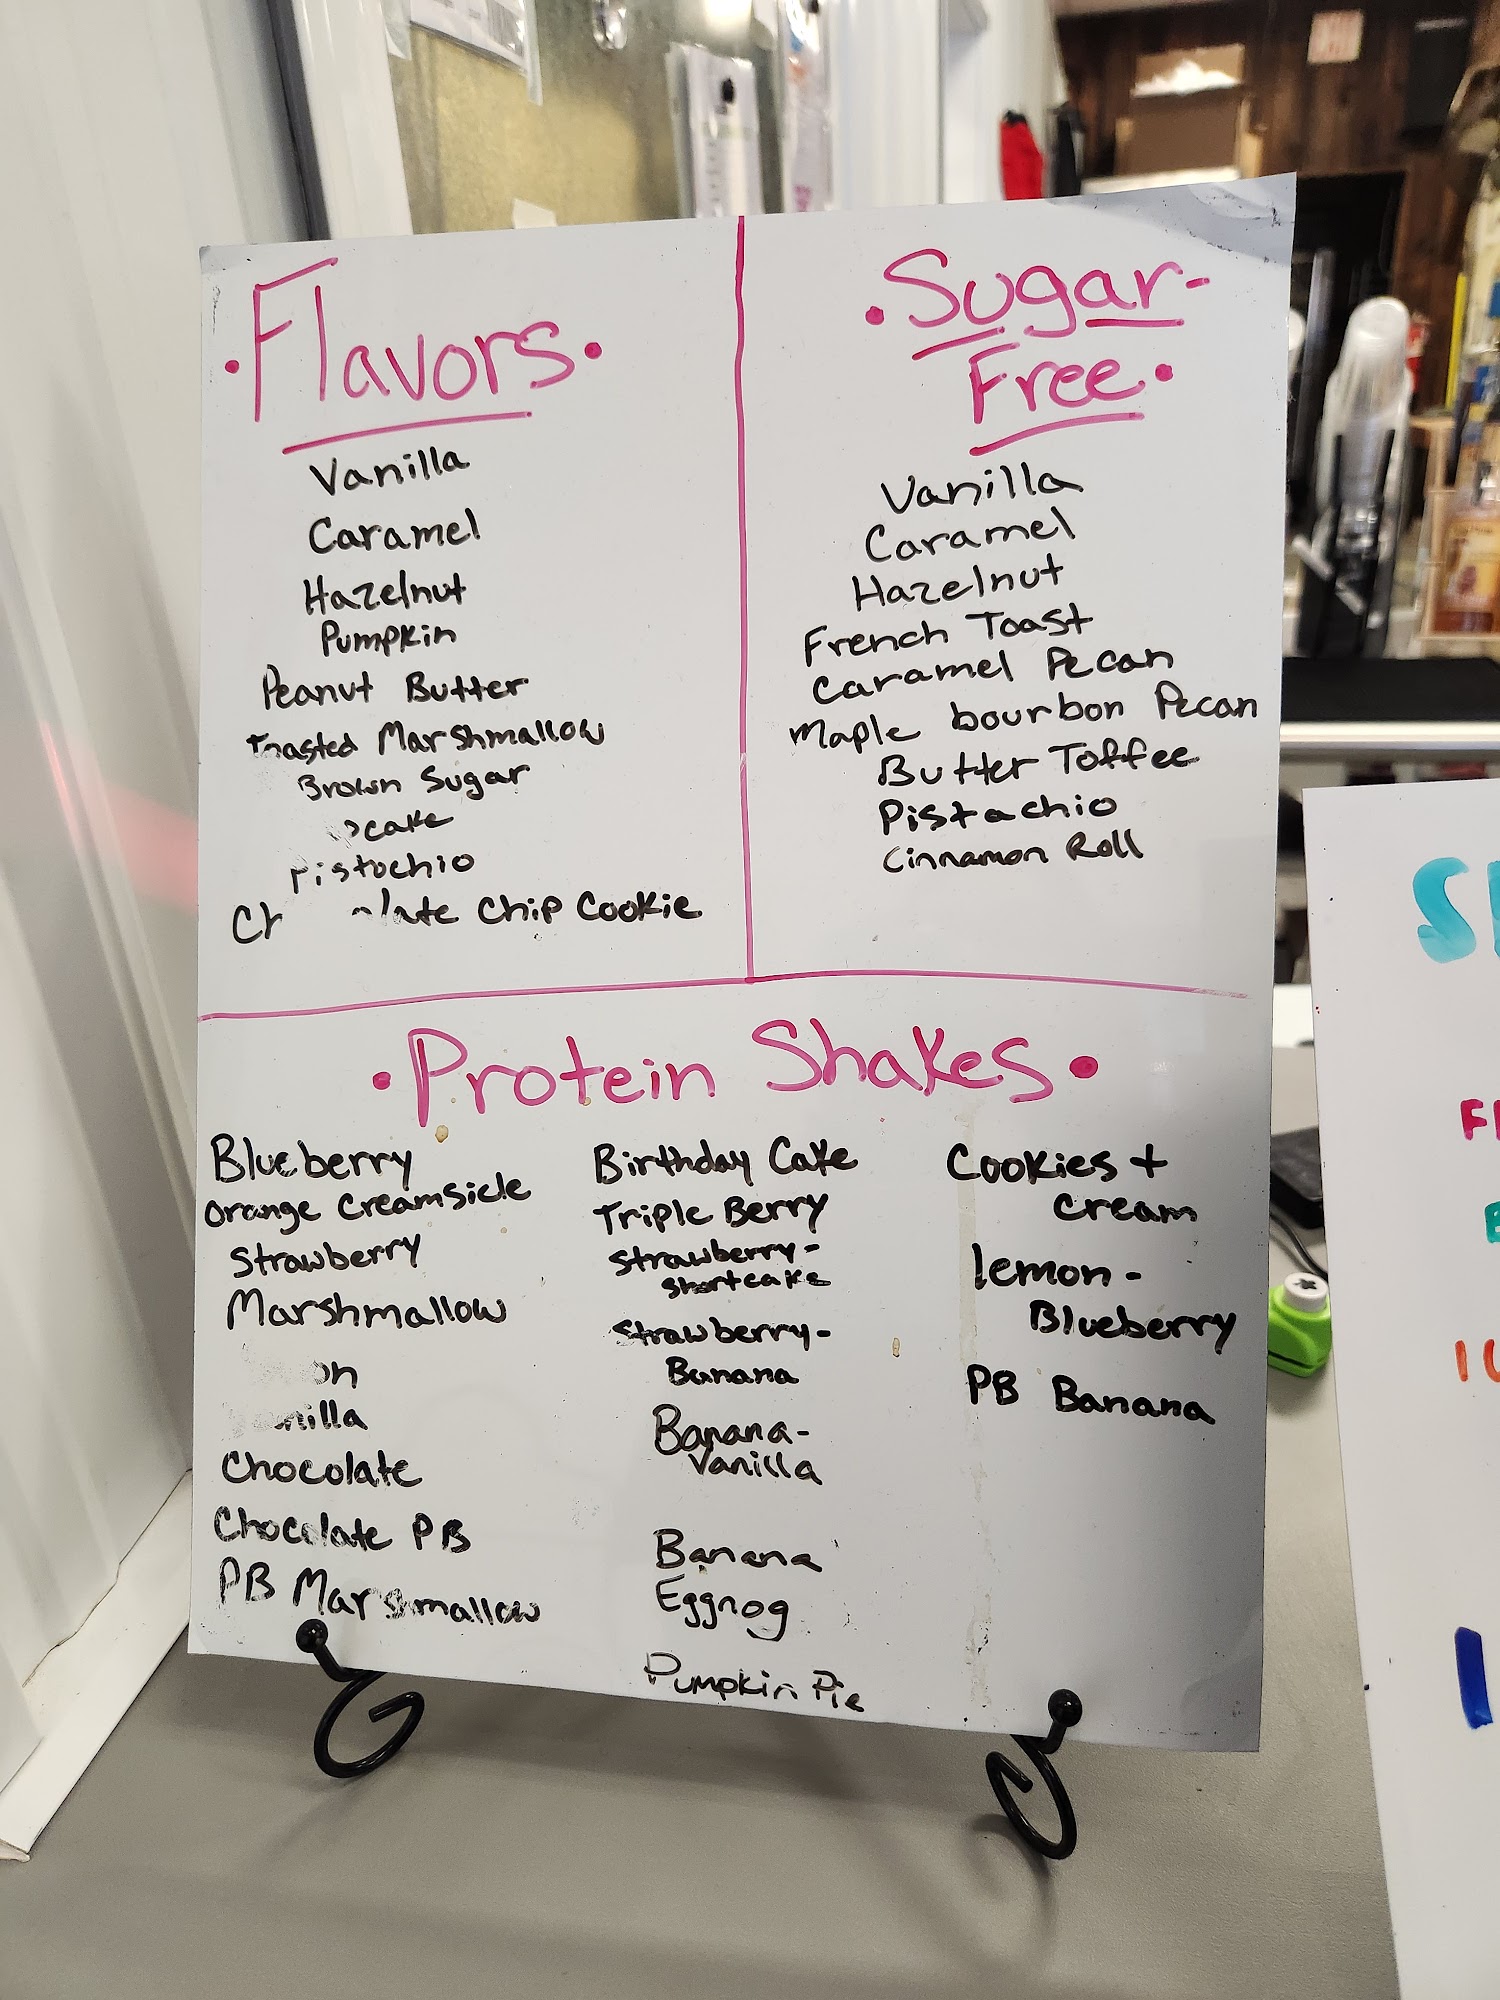 ·Flavors·
Vanilla
Caramel
Hazelnut
Pumpkin
Peanut Butter
Toasted Marshmallow
Brown Sugar
Pistachio
Chip Cookie
·Sugar-
Free·
Vanilla
Caramel
Hazelnut
French Toast
Caramel Pecan
Maple bourbon Pecan
Butter Toffee
Pistachio
Cinnamon Roll
·Protein Shakes·
Blueberry
Orange Creamsicle
Strawberry
Marshmallow
Vanilla
Chocolate
Chocolate PB
PB Marshmallow
Birthday Cake
Triple Berry
Strawberry-
Shortcake
Strawberry-
Banana
Banana-
Vanilla
Banana
Eggnog
Pumpkin Pie
Cookies +
Cream
lemon-
Blueberry
PB Banana